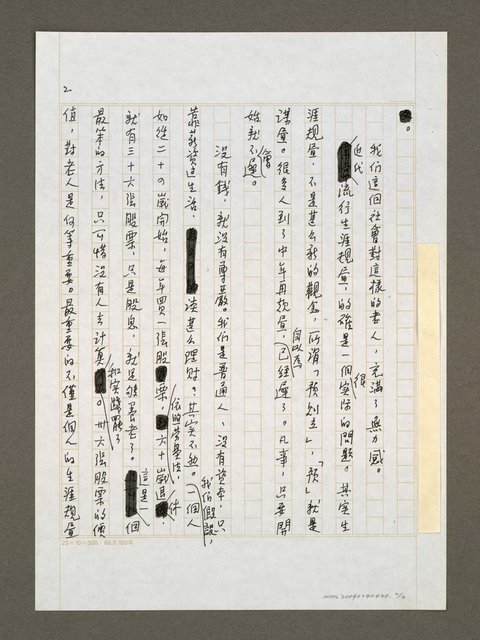 我們這個社會對這樣的老人，充滿了無力感。
近代流行生涯規畫，的確是一個很實際的問題。其實生
涯規畫，不是甚麼新的觀念，所謂「預則立」，「預」就是
謀畫。很多人到了中年再規畫，自以為已經遲了。凡事，只要開
始就不會遲。
沒有錢，就沒有尊嚴。我們是普通人，沒有資本，只
靠薪資過生活，談甚麼理財？其實不然。我們假設，一個人
如從二十四歲開始，每年買一張股票，依照勞基法，六十歲退休，
就有三十六張股票，只是股息，就足夠養老了。這是一個
最笨的方法，只可惜沒有人去計算和實踐罷了。卅六張股票的價
值，對老人是何等重要。最重要的不僅是個人的生涯規畫
2
NMTL20090240430